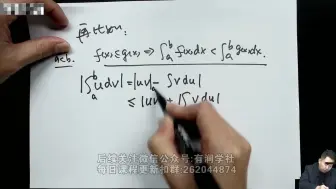 有润学社
a<b. f(x)≤g(x) ⇒ ∫_a^b f(x)dx < ∫_a^b g(x)dx.
|∫_a^b u dv| = |uv| - ∫v du|
≤ |uv| + |∫v du|
后续关注微信公众号:有润学社
每日课程更新扣群:262044874